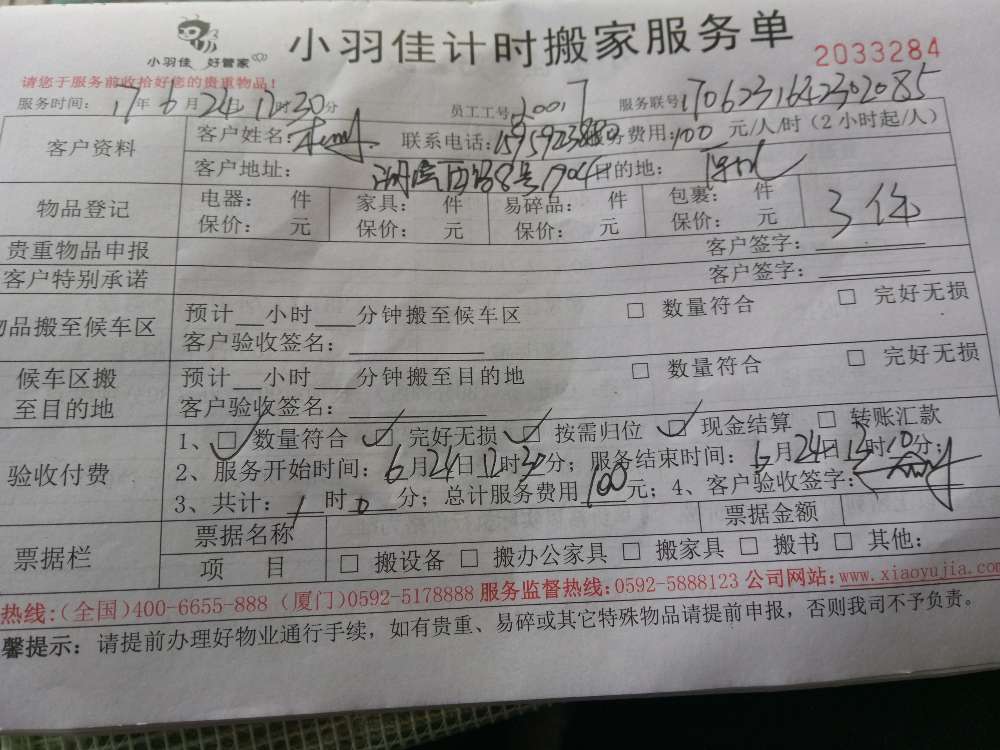 小羽佳 好管家
小羽佳计时搬家服务单
2033284
请您于服务前收拾好您的贵重物品!
服务时间: 17年6月24日12时30分 员工工号 20017 服务联号 1706231642302085
客户资料 客户姓名: 联系电话: 服务费用:100 元/人/时(2小时起/人)
客户地址: 西路8号1704 目的地:
物品登记 电器: 件 家具: 件 易碎品: 件 包裹: 件 3件
保价: 元 保价: 元 保价: 元 保价: 元
贵重物品申报 客户签字:
客户特别承诺 客户签字:
物品搬至候车区 预计__小时__分钟搬至候车区 □ 数量符合 □ 完好无损
客户验收签名:
候车区搬至目的地 预计__小时__分钟搬至目的地 □ 数量符合 □ 完好无损
客户验收签名:
验收付费 1、☑ 数量符合 ☑ 完好无损 ☑ 按需归位 ☑ 现金结算 □ 转账汇款
2、服务开始时间: 6月24日12时30分; 服务结束时间: 6月24日13时10分;
3、共计: 1时0分; 总计服务费用100元; 4、客户验收签字:
票据栏 票据名称 票据金额
项 目 □ 搬设备 □ 搬办公家具 □ 搬家具 □ 搬书 □ 其他:
热线:(全国)400-6655-888 (厦门)0592-5178888 服务监督热线:0592-5888123 公司网站:www.xiaoyujia.com
馨提示: 请提前办理好物业通行手续，如有贵重、易碎或其它特殊物品请提前申报，否则我司不予负责。